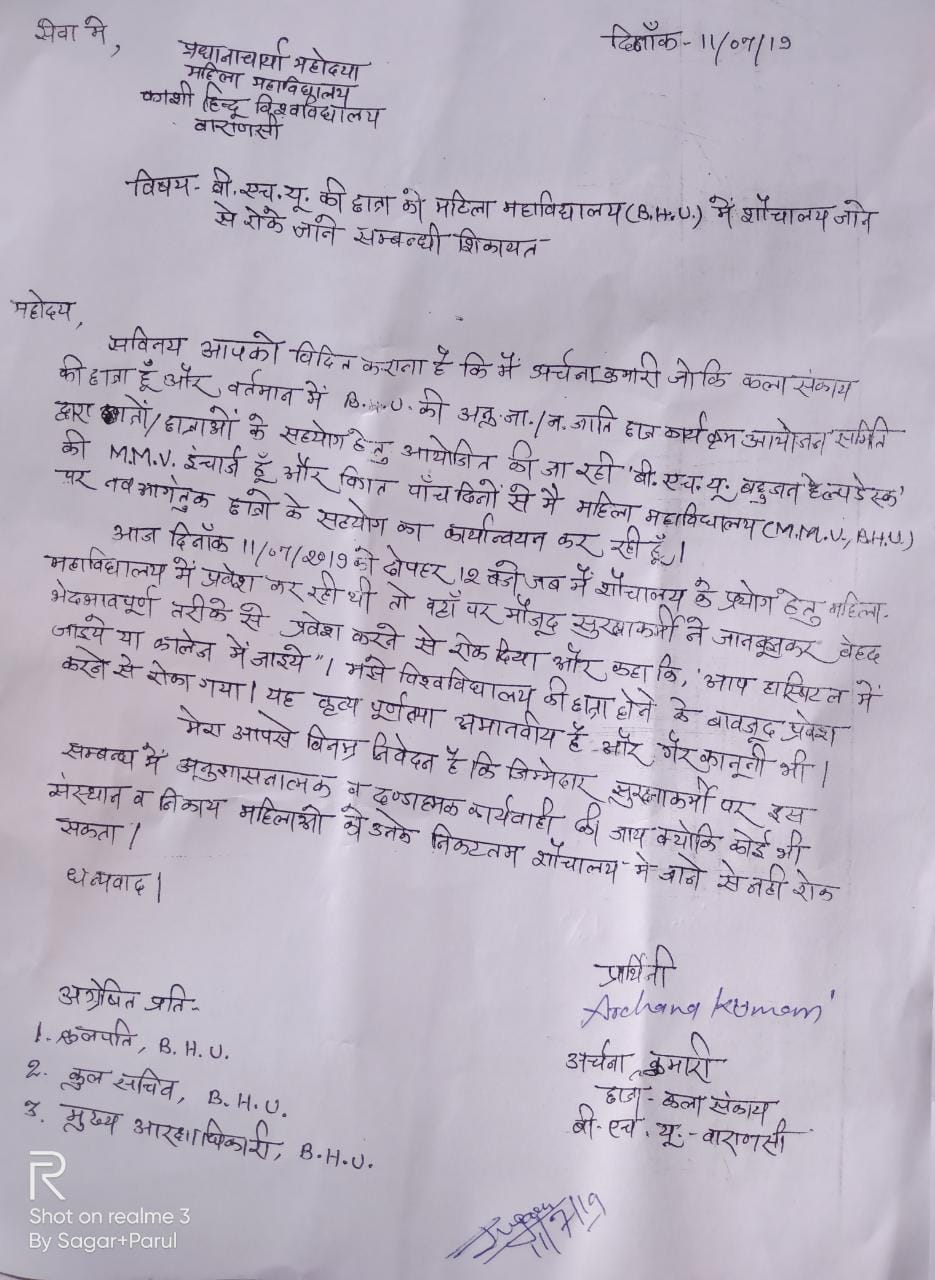 सेवा मे,
दिनाँक - 11/07/19
प्रधानाचार्या महोदया
महिला महाविद्यालय
काशी हिन्दू विश्वविद्यालय
वाराणसी
विषय - बी.एच.यू. की छात्रा को महिला महाविद्यालय (B.H.U.) में शौचालय जाने
से रोके जाने सम्बन्धी शिकायत
महोदय,
सविनय आपको विदित कराना है कि मैं अर्चना कुमारी जोकि कला संकाय
की छात्रा हूँ और वर्तमान में B.H.U. की अनु.जा./ज.जाति छात्र कार्यक्रम आयोजन समिति
द्वारा छात्रों/छात्राओं के सहयोग हेतु आयोजित की जा रही 'बी.एच.यू. बहुजन हेल्पडेस्क'
की M.M.V. इंचार्ज हूँ और विगत पाँच दिनों से मै महिला महाविद्यालय (M.M.V., B.H.U.)
पर नवआगंतुक छात्रो के सहयोग का कार्यान्वयन कर रही हूँ।
आज दिनाँक 11/07/2019 को दोपहर 12 बजे जब में शौचालय के प्रयोग हेतु महिला-
महाविद्यालय में प्रवेश कर रही थी तो वहाँ पर मौजूद सुरक्षाकर्मी ने जानबूझकर बेहद
भेदभावपूर्ण तरीके से प्रवेश करने से रोक दिया और कहा कि, 'आप हास्पिटल में
जाइये या कालेज में जाइये"। मुझे विश्वविद्यालय की छात्रा होने के बावजूद प्रवेश
करने से रोका गया। यह कृत्य पूर्णतया अमानवीय है और गैर कानूनी भी।
मेरा आपसे विनम्र निवेदन है कि जिम्मेदार सुरक्षाकर्मी पर इस
सम्बन्ध में अनुशासनात्मक व दण्डात्मक कार्यवाही की जाय क्योंकि कोई भी
संस्थान व निकाय महिलाओं को उनके निकटतम शौचालय मे जाने से नही रोक
सकता।
धन्यवाद।
प्रार्थिनी
Archana Kumari
अर्चना कुमारी
छात्रा - कला संकाय
बी. एच. यू. - वाराणसी
अग्रेषित प्रति-
1. कुलपति, B.H.U.
2. कुल सचिव, B.H.U.
3. मुख्य आरक्षाधिकारी, B.H.U.
11/7/19
R
Shot on realme 3
By Sagar+Parul